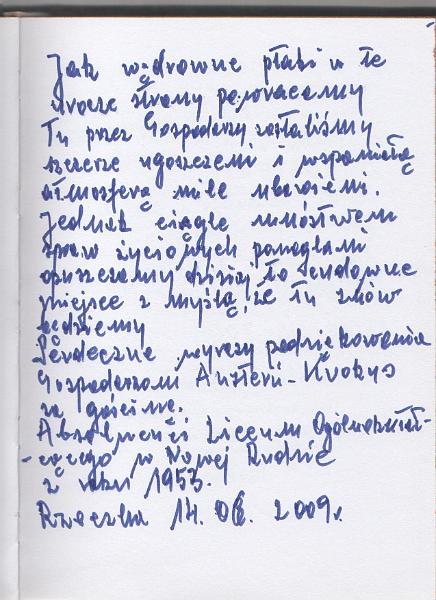 Jak wędrowne ptaki w te
urocze strony powracamy
Tu przez Gospodarzy zostaliśmy
szczerze ugoszczeni i wspaniałą
atmosferą mile ubawieni.
Jednak ciągle mnóstwem
spraw życiowych ponaglani
opuszczamy dzisiaj to cudowne
miejsce z myślą, że tu znów
będziemy
Serdeczne wyrazy podziękowania
Gospodarzom Austerii - Krokus
za gościnę.
Absolwenci Liceum Ogólnokształ-
-cącego w Nowej Rudzie
z roku 1953.
Rzeczka 14. 06. 2009r.